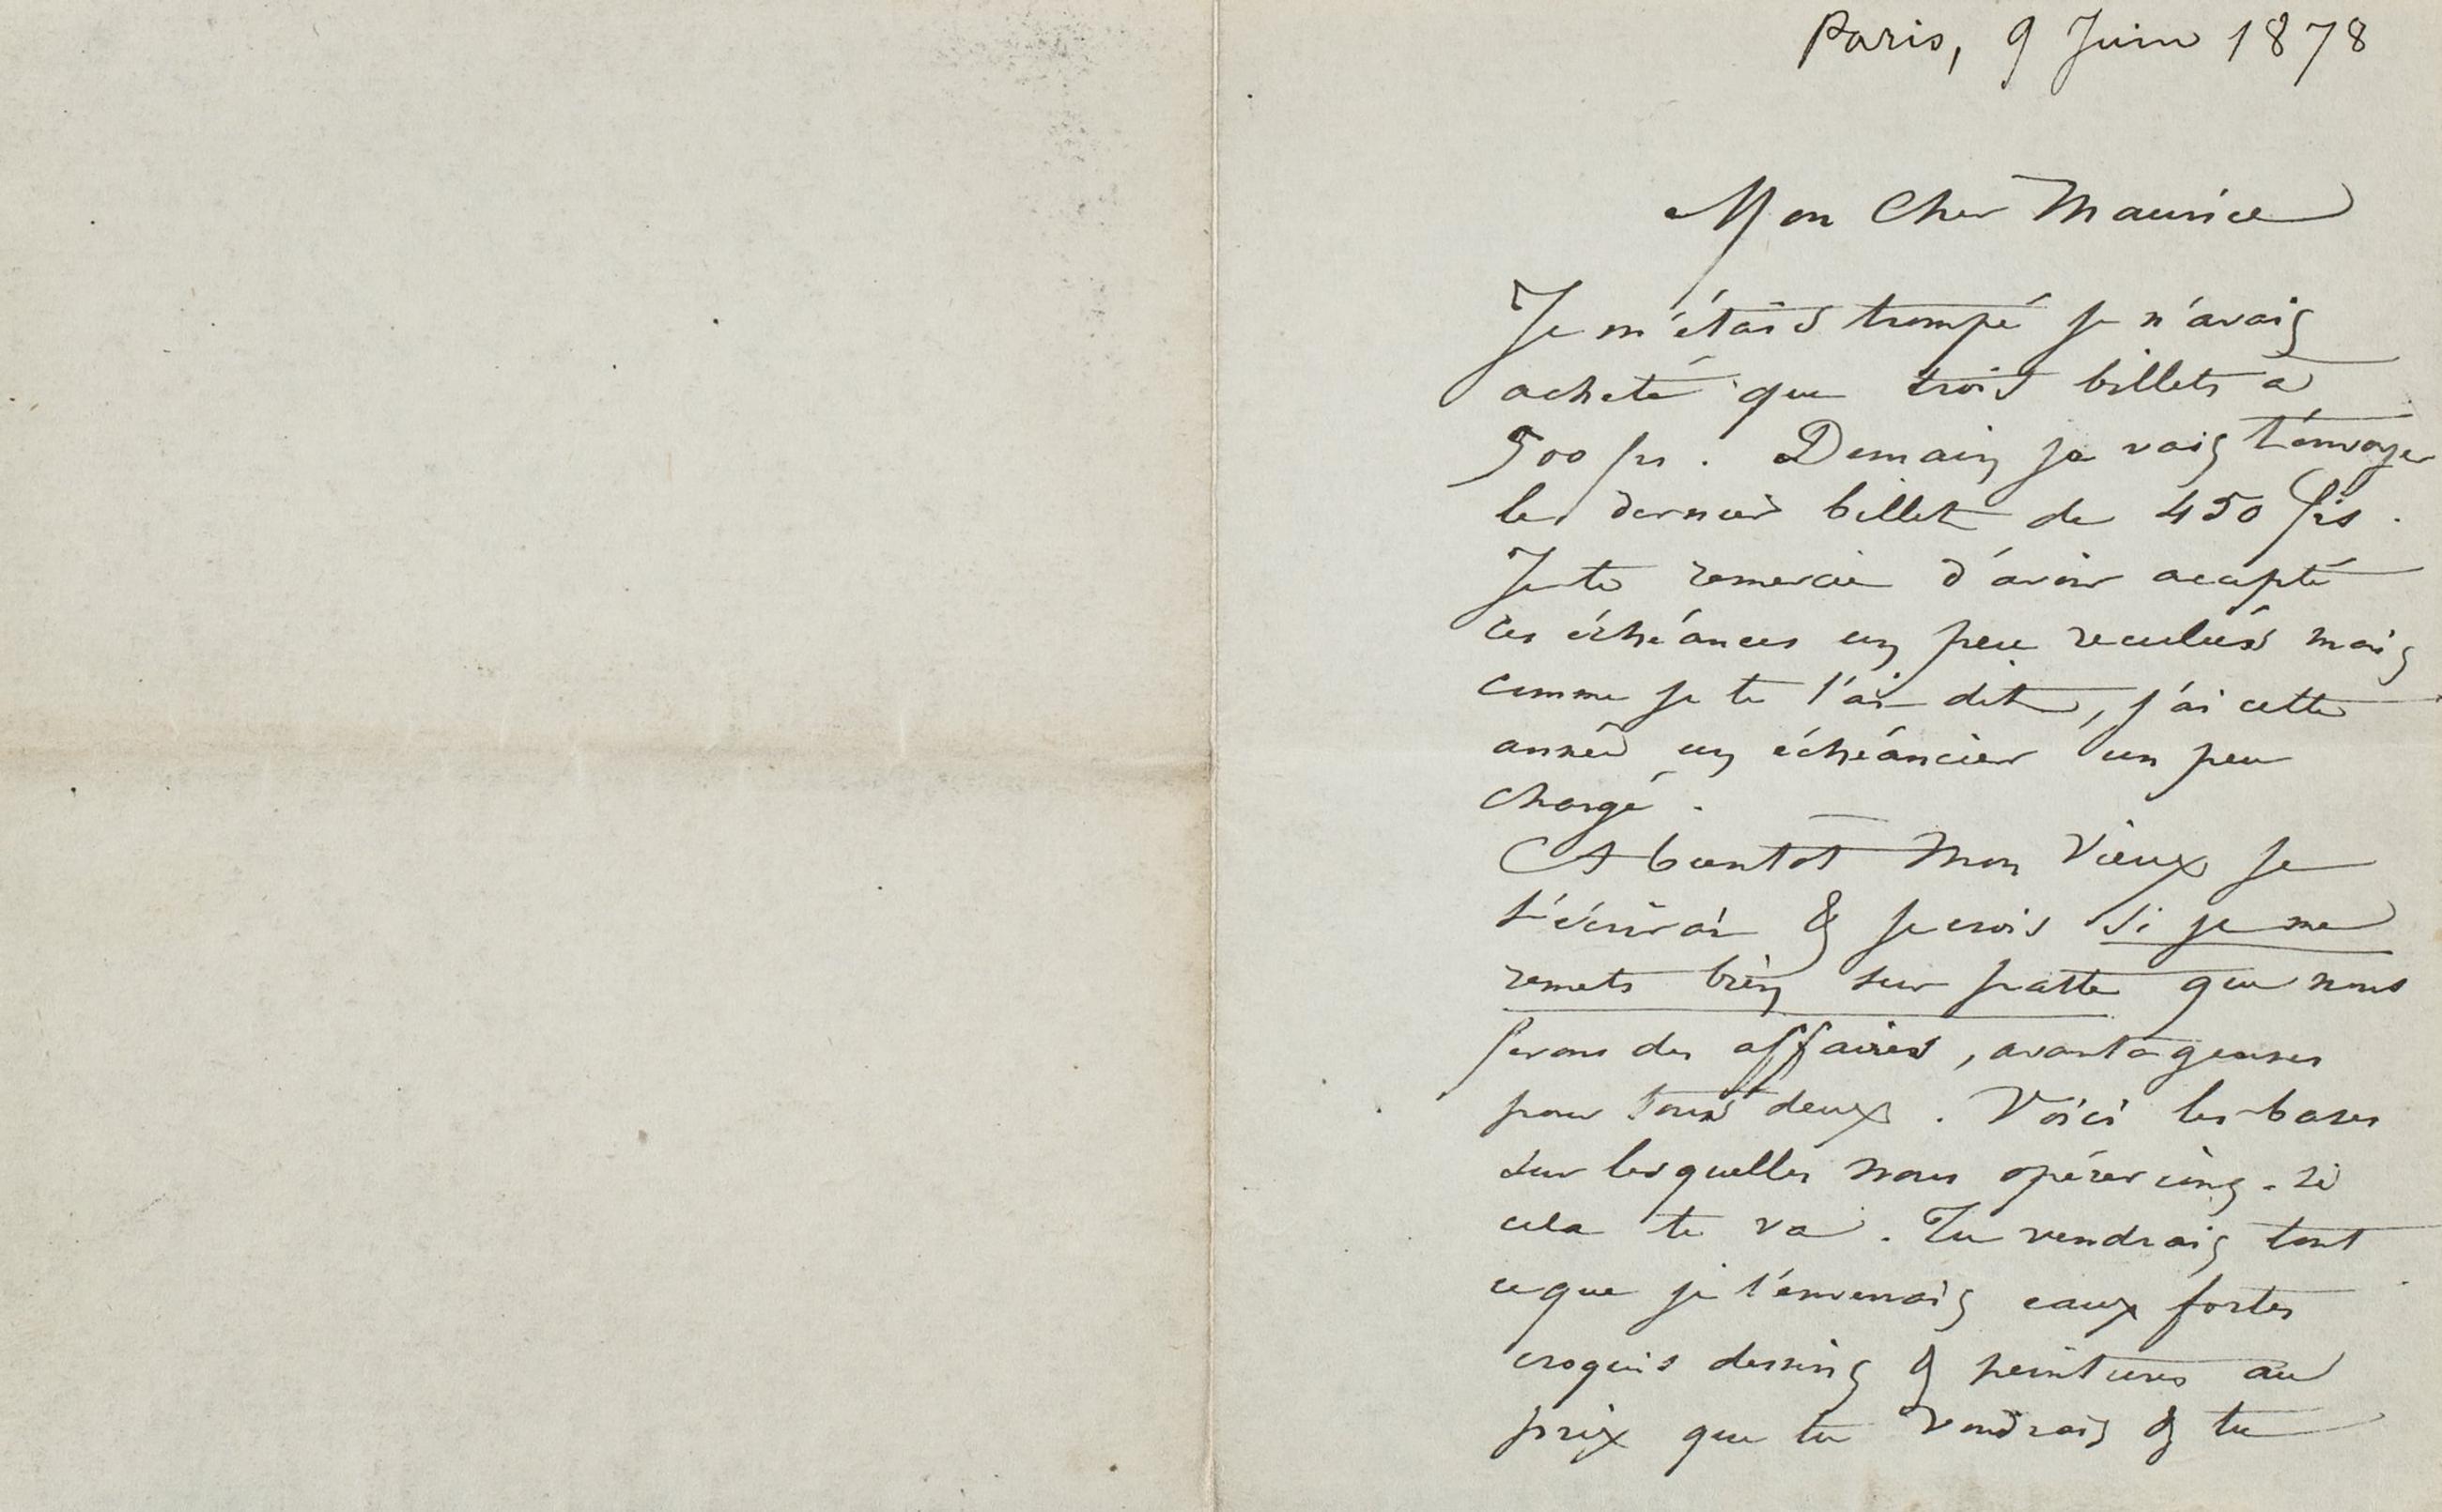 Paris, 9 Juin 1878
Mon Cher Maurice
Je m'étais trompé je n'avais
acheté que trois billets à
500 frs. Demain je vais t'envoyer
le dernier billet de 450 frs.
Je te remercie d'avoir accepté
ces échéances un peu reculées mais
comme je te l'ai dit, j'ai cette
année un échéancier un peu
chargé.
A bientot Mon Vieux je
t'écrirai & je crois si je me
remets bien sur patte que nous
ferons des affaires, avantageuses
pour tous deux. Voici les bases
sur lesquelles nous opérerions. si
cela te va. Tu vendrais tout
ce que je t'enverrais eaux fortes
croquis dessins & peintures au
prix que tu voudrais & tu